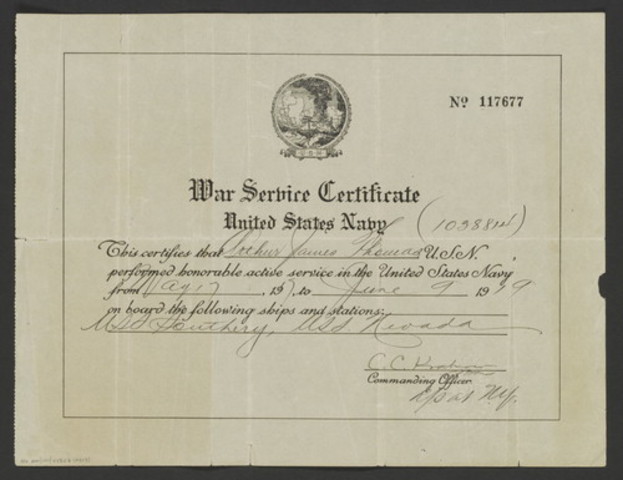 Nº 117677
War Service Certificate
United States Navy (1038814)
This certifies that Arthur James Thomas U.S.N.,
performed honorable active service in the United States Navy
from May 17, 191, to June 9 1939
on board the following ships and stations:
USS Southery, USS Nevada
C. C.
Commanding Officer